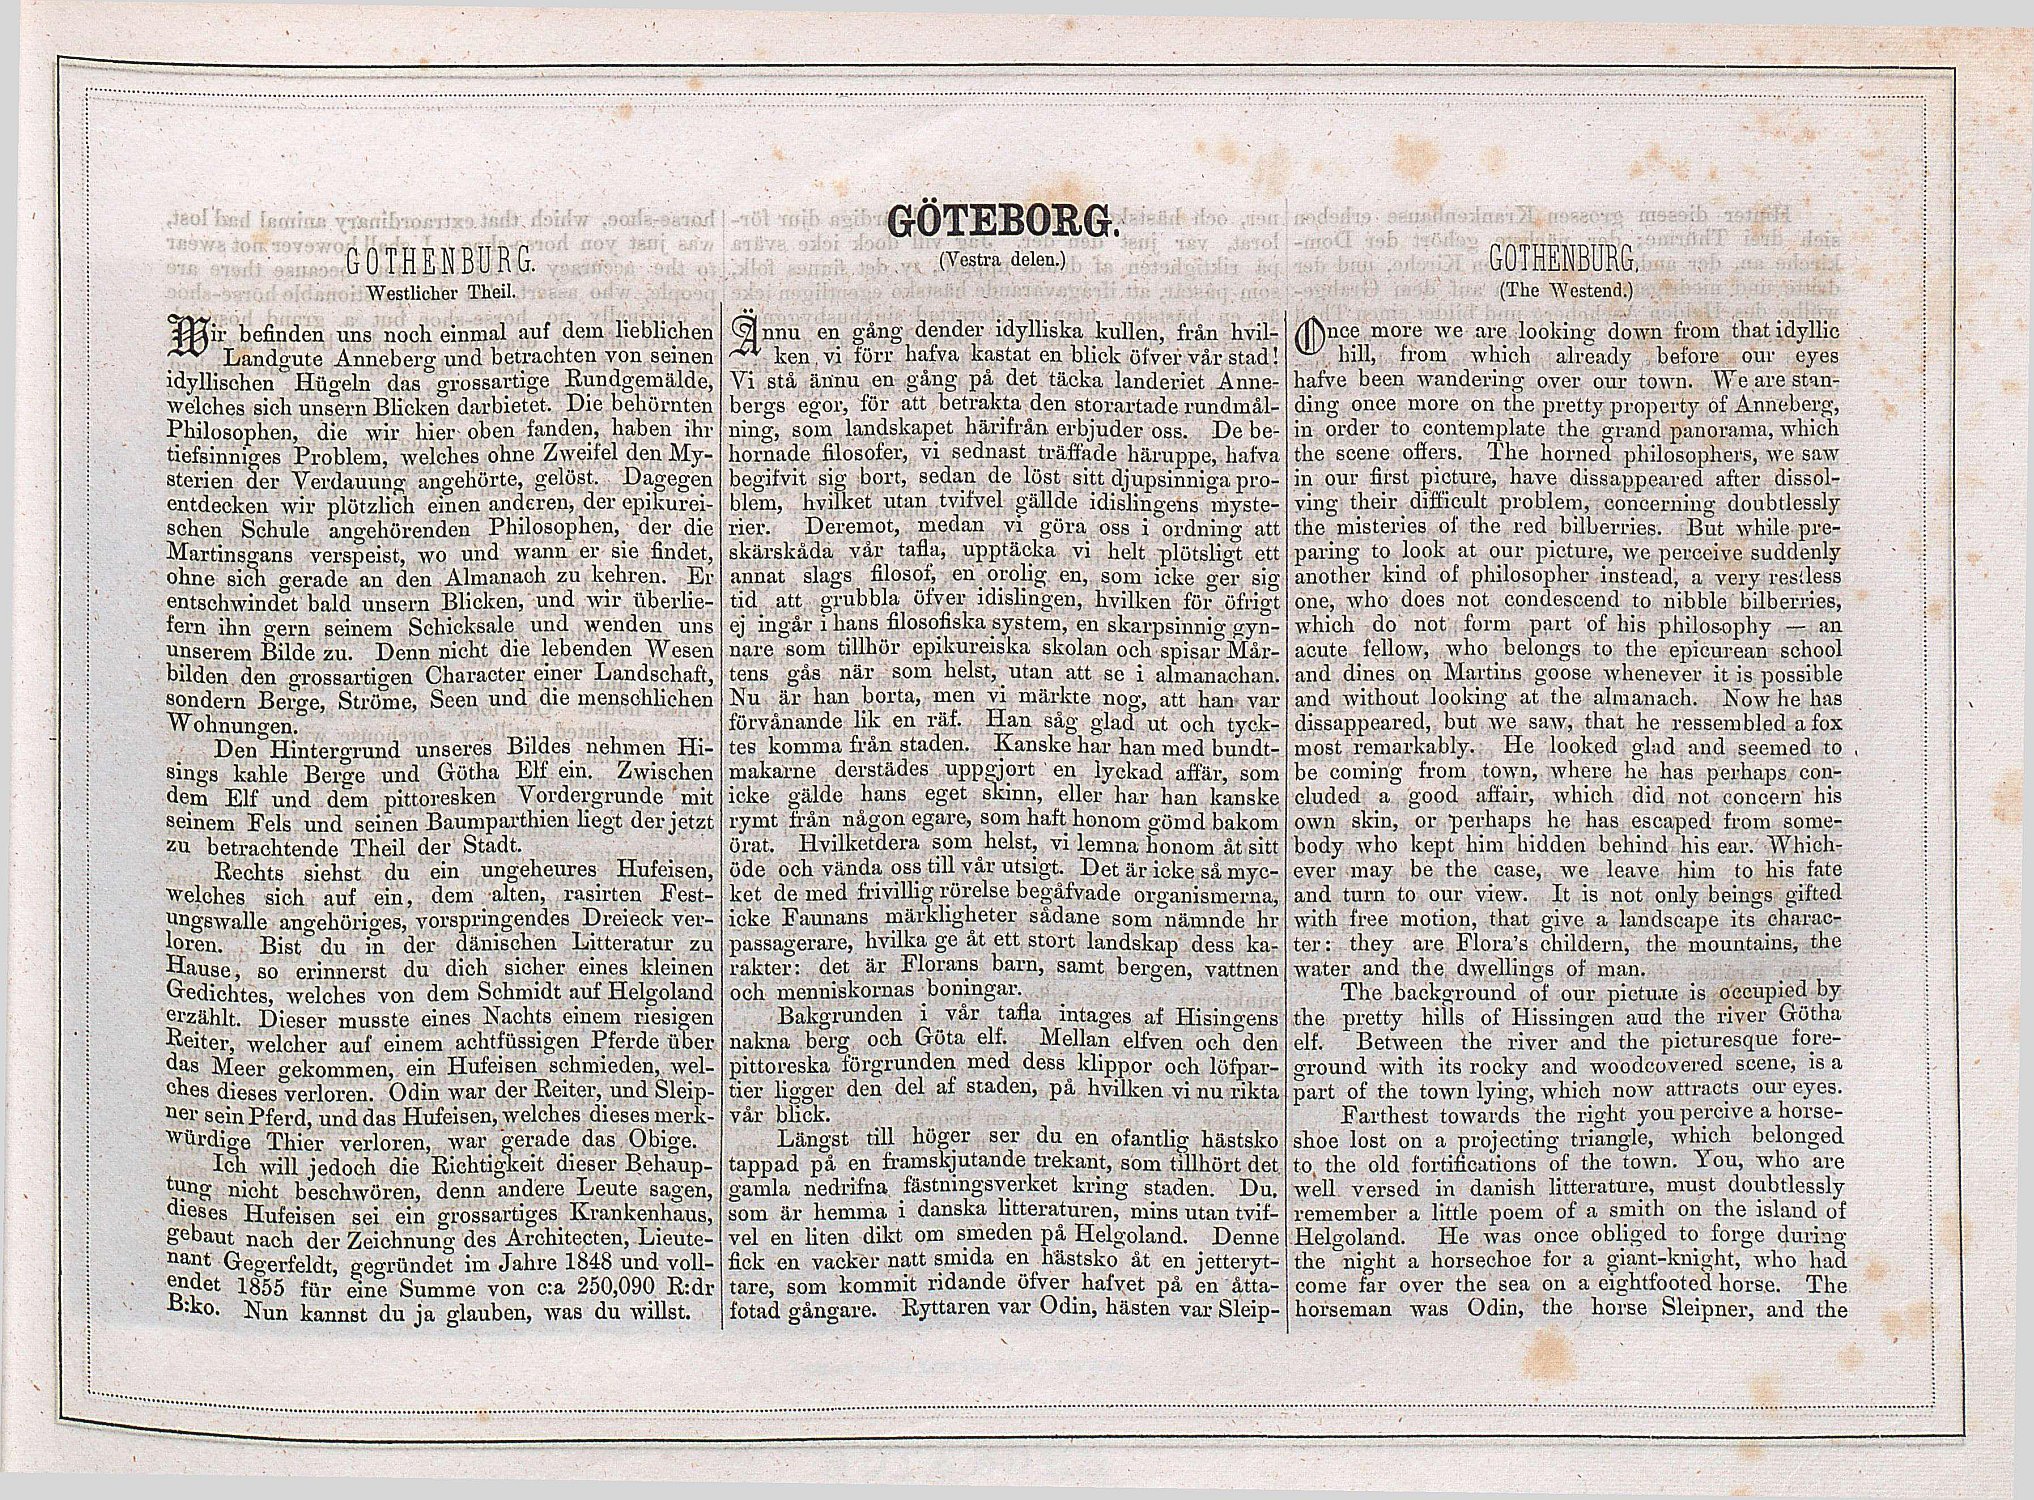 GÖTEBORG.
GOTHENBURG.
Westlicher Theil.
Wir befinden uns noch einmal auf dem lieblichen
Landgute Anneberg und betrachten von seinen
idyllischen Hügeln das grossartige Rundgemälde,
welches sich unsern Blicken darbietet. Die behörnten
Philosophen, die wir hier oben fanden, haben ihr
tiefsinniges Problem, welches ohne Zweifel den My-
sterien der Verdauung angehörte, gelöst. Dagegen
entdecken wir plötzlich einen anderen, der epikurei-
schen Schule angehörenden Philosophen, der die
Martinsgans verspeist, wo und wann er sie findet,
ohne sich gerade an den Almanach zu kehren. Er
entschwindet bald unsern Blicken, und wir überlie-
fern ihn gern seinem Schicksale und wenden uns
unserem Bilde zu. Denn nicht die lebenden Wesen
bilden den grossartigen Character einer Landschaft,
sondern Berge, Ströme, Seen und die menschlichen
Wohnungen.
Den Hintergrund unseres Bildes nehmen Hi-
sings kahle Berge und Götha Elf ein. Zwischen
dem Elf und dem pittoresken Vordergrunde mit
seinem Fels und seinen Baumparthien liegt der jetzt
zu betrachtende Theil der Stadt.
Rechts siehst du ein ungeheures Hufeisen,
welches sich auf ein, dem alten, rasirten Fest-
ungswalle angehöriges, vorspringendes Dreieck ver-
loren. Bist du in der dänischen Litteratur zu
Hause, so erinnerst du dich sicher eines kleinen
Gedichtes, welches von dem Schmidt auf Helgoland
erzählt. Dieser musste eines Nachts einem riesigen
Reiter, welcher auf einem achtfüssigen Pferde über
das Meer gekommen, ein Hufeisen schmieden, wel-
ches dieses verloren. Odin war der Reiter, und Sleip-
ner sein Pferd, und das Hufeisen, welches dieses merk-
würdige Thier verloren, war gerade das Obige.
Ich will jedoch die Richtigkeit dieser Behaup-
tung nicht beschwören, denn andere Leute sagen,
dieses Hufeisen sei ein grossartiges Krankenhaus,
gebaut nach der Zeichnung des Architecten, Lieute-
nant Gegerfeldt, gegründet im Jahre 1848 und voll-
endet 1855 für eine Summe von c:a 250,090 R:dr
B:ko. Nun kannst du ja glauben, was du willst.
(Vestra delen.)
Ännu en gång dender idylliska kullen, från hvil-
ken vi förr hafva kastat en blick öfver vår stad!
Vi stå ännu en gång på det täcka landeriet Anne-
bergs egor, för att betrakta den storartade rundmål-
ning, som landskapet härifrån erbjuder oss. De be-
hornade filosofer, vi sednast träffade häruppe, hafva
begifvit sig bort, sedan de löst sitt djupsinniga pro-
blem, hvilket utan tvifvel gällde idislingens myste-
rier. Deremot, medan vi göra oss i ordning att
skärskåda vår tafla, upptäcka vi helt plötsligt ett
annat slags filosof, en orolig en, som icke ger sig
tid att grubbla öfver idislingen, hvilken för öfrigt
ej ingår i hans filosofiska system, en skarpsinnig gyn-
nare som tillhör epikureiska skolan och spisar Mår-
tens gås när som helst, utan att se i almanachan.
Nu är han borta, men vi märkte nog, att han var
förvånande lik en räf. Han såg glad ut och tyck-
tes komma från staden. Kanske har han med bundt-
makarne derstädes uppgjort en lyckad affär, som
icke gälde hans eget skinn, eller har han kanske
rymt från någon egare, som haft honom gömd bakom
örat. Hvilketdera som helst, vi lemna honom åt sitt
öde och vända oss till vår utsigt. Det är icke så myc-
ket de med frivillig rörelse begåfvade organismerna,
icke Faunans märkligheter sådane som nämnde hr
passagerare, hvilka ge åt ett stort landskap dess ka-
rakter: det är Florans barn, samt bergen, vattnen
och menniskornas boningar.
Bakgrunden i vår tafla intages af Hisingens
nakna berg och Göta elf. Mellan elfven och den
pittoreska förgrunden med dess klippor och löfpar-
tier ligger den del af staden, på hvilken vi nu rikta
vår blick.
Längst till höger ser du en ofantlig hästsko
tappad på en framskjutande trekant, som tillhört det
gamla nedrifna fästningsverket kring staden. Du,
som är hemma i danska litteraturen, mins utan tvif-
vel en liten dikt om smeden på Helgoland. Denne
fick en vacker natt smida en hästsko åt en jetteryt-
tare, som kommit ridande öfver hafvet på en åtta-
fotad gångare. Ryttaren var Odin, hästen var Sleip-
GOTHENBURG.
(The Westend.)
Once more we are looking down from that idyllic
hill, from which already before our eyes
hafve been wandering over our town. We are stan-
ding once more on the pretty property of Anneberg,
in order to contemplate the grand panorama, which
the scene offers. The horned philosophers, we saw
in our first picture, have dissappeared after dissol-
ving their difficult problem, concerning doubtlessly
the misteries of the red bilberries. But while pre-
paring to look at our picture, we perceive suddenly
another kind of philosopher instead, a very restless
one, who does not condescend to nibble bilberries,
which do not form part of his philosophy — an
acute fellow, who belongs to the epicurean school
and dines on Martins goose whenever it is possible
and without looking at the almanach. Now he has
dissappeared, but we saw, that he ressembled a fox
most remarkably. He looked glad and seemed to
be coming from town, where he has perhaps con-
cluded a good affair, which did not concern his
own skin, or perhaps he has escaped from some-
body who kept him hidden behind his ear. Which-
ever may be the case, we leave him to his fate
and turn to our view. It is not only beings gifted
with free motion, that give a landscape its charac-
ter: they are Flora's childern, the mountains, the
water and the dwellings of man.
The background of our picture is occupied by
the pretty hills of Hissingen aud the river Götha
elf. Between the river and the picturesque fore-
ground with its rocky and woodcovered scene, is a
part of the town lying, which now attracts our eyes.
Farthest towards the right you percive a horse-
shoe lost on a projecting triangle, which belonged
to the old fortifications of the town. You, who are
well versed in danish litterature, must doubtlessly
remember a little poem of a smith on the island of
Helgoland. He was once obliged to forge during
the night a horsechoe for a giant-knight, who had
come far over the sea on a eightfooted horse. The
horseman was Odin, the horse Sleipner, and the